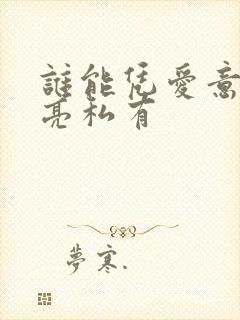 誰能凭愛意
亮私有
夢寒.